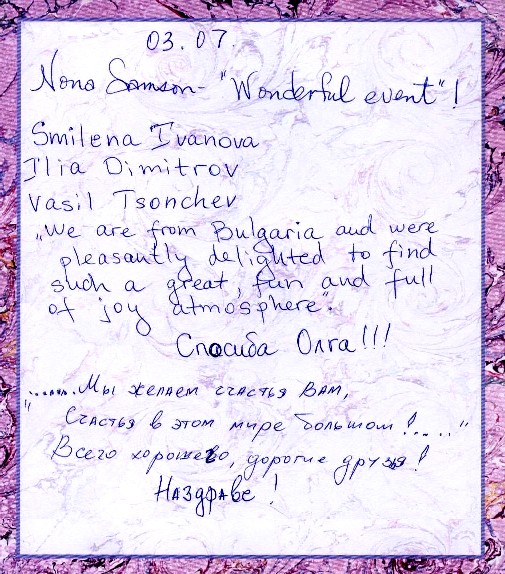 03.07.
Nona Samson - "Wonderful event"!
Smilena Ivanova
Ilia Dimitrov
Vasil Tsonchev
„We are from Bulgaria and were
pleasantly delighted to find
such a great, fun and full
of joy atmosphere".
Спосиба Олга!!!
".......Мы желаем счастья Вам,
Счастья в этом мире большом!....."
Всего хорошево, дорогие друзя!
Наздраве!